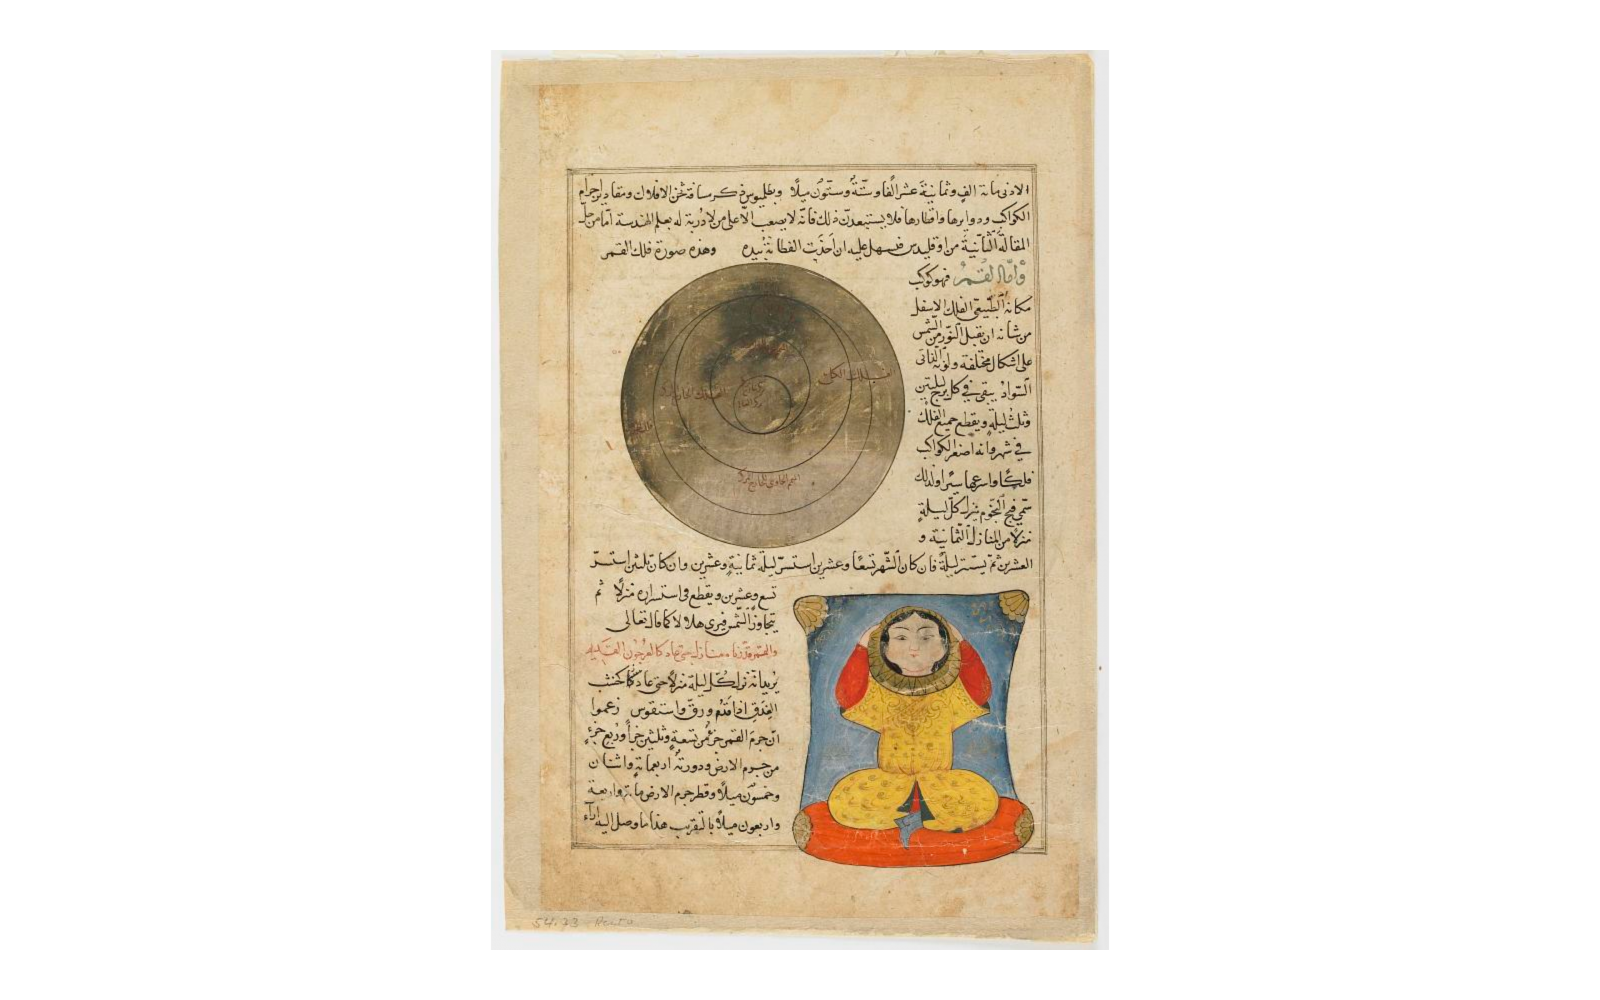 الادنى مائة الف وثمانية عشر الفا وستّة وستّون ميلًا وبطليوس ذكر مسافة ثخن الافلاك ومقادير اجرام
الكواكب ودوايرها واقطارها فلا يستبعدنّ ذلك فانّه لا يصعب الّا على من لا دُربة له بعلم الهندسة امّا من حلّ
المقالة الثانية من اوقليدس فسهل عليه ان اخذت الفطانة بيده وهذه صورة فلك القمر
وامّا القمر فهو كوكب
مكانه الطبيعى الفلك الاسفل
من شانه ان يقبل النّور من الشّمس
على اشكال مختلفة ولونه الذاتى
السّواد يبقى في كل برج ليلتين
وثلث ليلة ويقطع جميع الفلك
في شهر وانه اصغر الكواكب
فلكًا واسرعها سيرًا ولذلك
سمّي فيج النّجوم ينزل كلّ ليلةٍ
منزلًا من المنازل الثّمانية و
العشرين ثمّ يستتر ليلةً فان كان الشّهر تسعًا وعشرين استسرّ ليلة ثمانيةٍ وعشرين وان كان ثلثين استسرّ
تسع وعشرين ويقطع في استسراره منزلًا ثم
يتجاوز الشّمس فيرى هلالا كما قال تعالى
والقمر قدرناه منازل حتى عاد كالعرجون القديم
يريد انّه ينزل كلّ ليلة منزلًا حتى عاد
العذق اذا قدُم ورقّ واستقوس زعموا
انّ جرم القمر جزءٌ من تسعةٍ وثلثين جزأ وربع جزءٍ
من جرم الارض ودورته اربعمائة واثنان
وخمسون ميلًا وقطر جرم الارض مائة واربعة
واربعون ميلًا بالتقريب هذا ما وصل اليه آراء
الفلك الكلى
الفلك الخارج المركز
الجسم الحاوي للخارج المركز
54.33 Recto